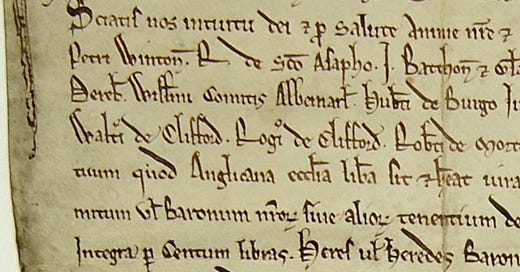 Sciatis nos intuitu dei ⁊ p̱ salute Anime nr̄e ⁊
Petri Winton̄. R. de Sc̄o Asapho. J. Bathon̄ ⁊ Gl
Dereb̄. Will̄mi Comitis Albemarl̄. Hub̄ti de Burgo Ju
Walt̄i de Clifford. Roḡi de Clifford. Rob̄ti de Mort
tuum quod Anglicana eccl̄ia lib̄a sit ⁊ h̄eat iura
mitum vl̄ Baronum nr̄oꝝ siue alioꝝ tenentium de
Integra p̱ Centum libras. Heres vl̄ heredes Baron